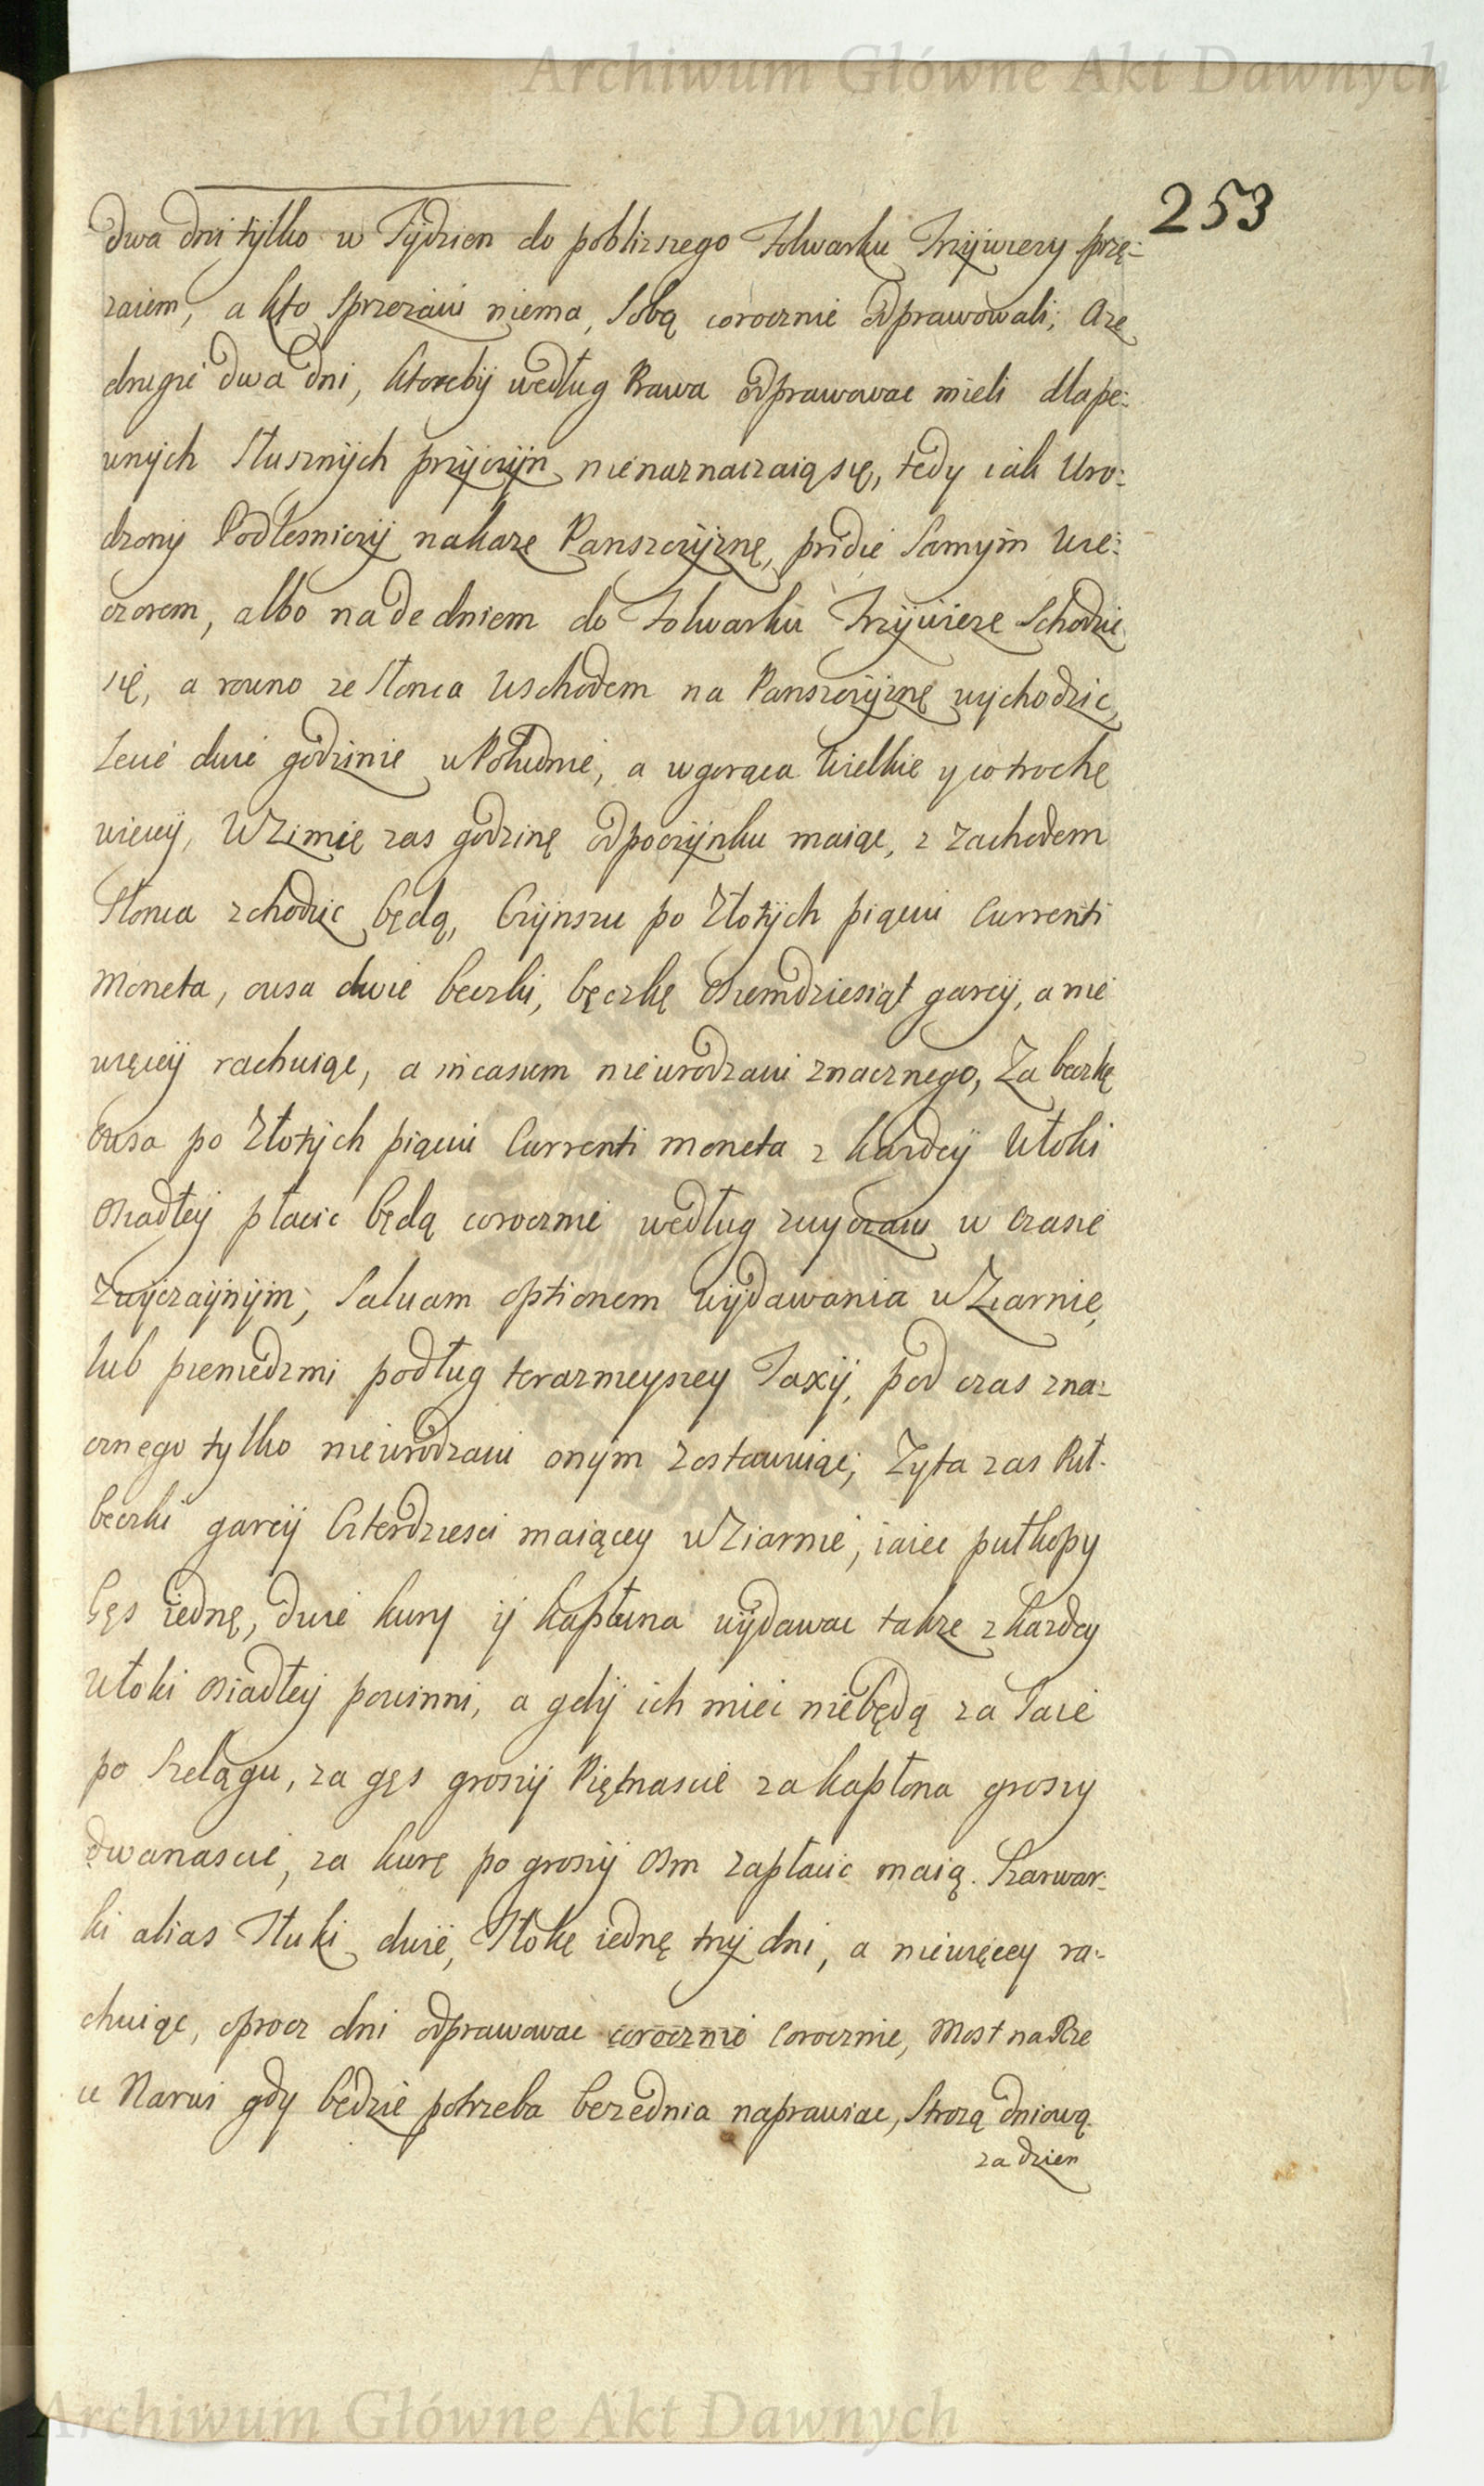 Archiwum Główne Akt Dawnych
253
dwa dni tylko w Tydzien do poblizszego Folwarku Trzywiezy sprzę-
zaiem, a kto Sprzezaiu niema, Sobą corocznie odprawowali; A ze
drugie dwa dni, ktoreby według Prawa odprawowac mieli dla pe-
wnych Słusznych przyczyn nienaznaczaią się, tedy iak Uro-
dzony Podlesniczy nakaze Panszczyznę, pridie Samym Wie-
czorem, albo nade dniem do Folwarku Trzywieze Schodzic
się, a rowno ze Słonca Wschodem na Panszczyznę wychodzic,
Lecie dwie godzinie w Południe, a w gorąca Wielkie y co trochę
wiecey, W Zimie zas godzinę odpoczynku maiąc, z Zachodem
Słonca zchodzic będą, Czynszu po Złotych pięciu Currenti
Moneta, owsa dwie beczki, bęczkę osiemdziesiąt garcy, a nie
więcey rachuiąc, a in casum nieurodzaiu znacznego, Za beczkę
Owsa po Złotych pięciu Currenti moneta z kazdey Włoki
Osiadłey płacic będą corocznie według zwyczaiu w czasie
Zwyczaynym, Salvam optionem wydawania w Ziarnie,
lub pieniedzmi podług terazneyszey Taxy, pod czas zna-
cznego tylko nieurodzaiu onym zostawuiąc; Zyta zas Puł-
beczki garcy Czterdziesci maiącey w Ziarnie, iaiec pułkopy
Gęs iednę, dwie kury y kapłuna wydawac takze z kazdey
Włoki osiadłey powinni, a gdy ich miec niebędą za Jaie
po Szelągu, za gęs groszy Piętnascie za kapłona groszy
dwanascie, za kurę po groszy Osm zapłacic maią. Szarwar-
ki alias Tłuki dwie, Tłokę iednę trzy dni, a niewięcey ra-
chuiąc, oprocz dni odprawowac corocznie Corocznie, Most na Rze
ce Narwi gdy będzie potrzeba bezednia naprawiac, Strozą dniową
za dzien
Archiwum Główne Akt Dawnych